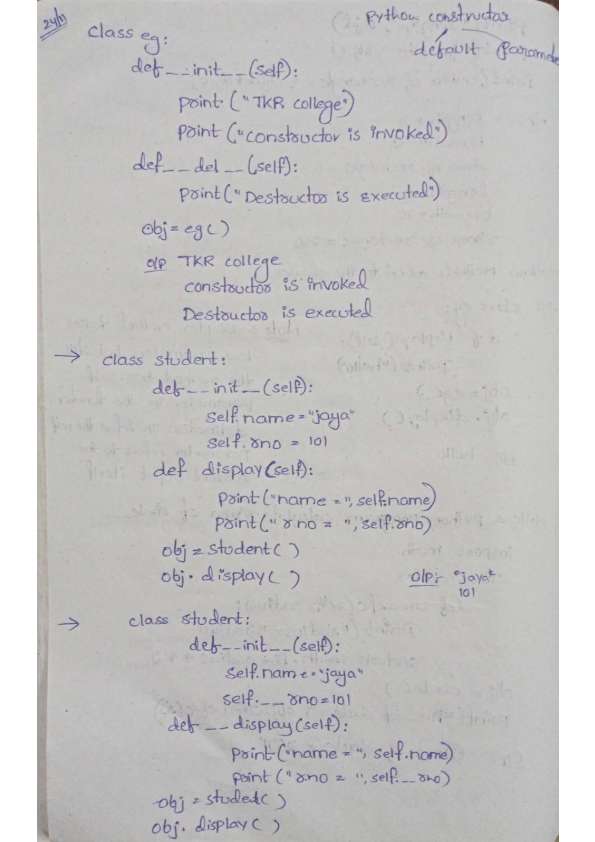 24/11
Python constructor
default
class eg:
def __init__(self):
print ("TKR college")
print ("constructor is invoked")
def __del__(self):
print ("Destructor is executed")
obj = eg()
o/p TKR college
constructor is invoked
Destructor is executed
→ class student:
def __init__(self):
self.name = "jaya"
self.rno = 101
def display(self):
print ("name = ", self.name)
print ("rno = ", self.rno)
obj = student()
obj.display()
O/P:- "jaya"
101
→ class student:
def __init__(self):
self.name = "jaya"
self.__rno = 101
def __display(self):
print ("name = ", self.name)
print ("rno = ", self.__rno)
obj = studet()
obj.display()